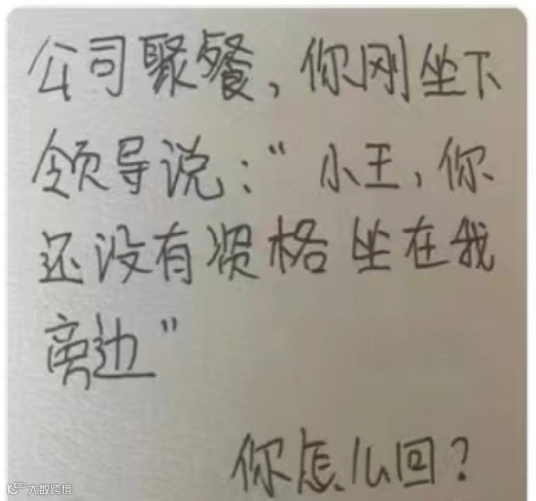 公司聚餐，你刚坐下
领导说："小王，你
还没有资格坐在我
旁边"
你怎么回？
大数跨境